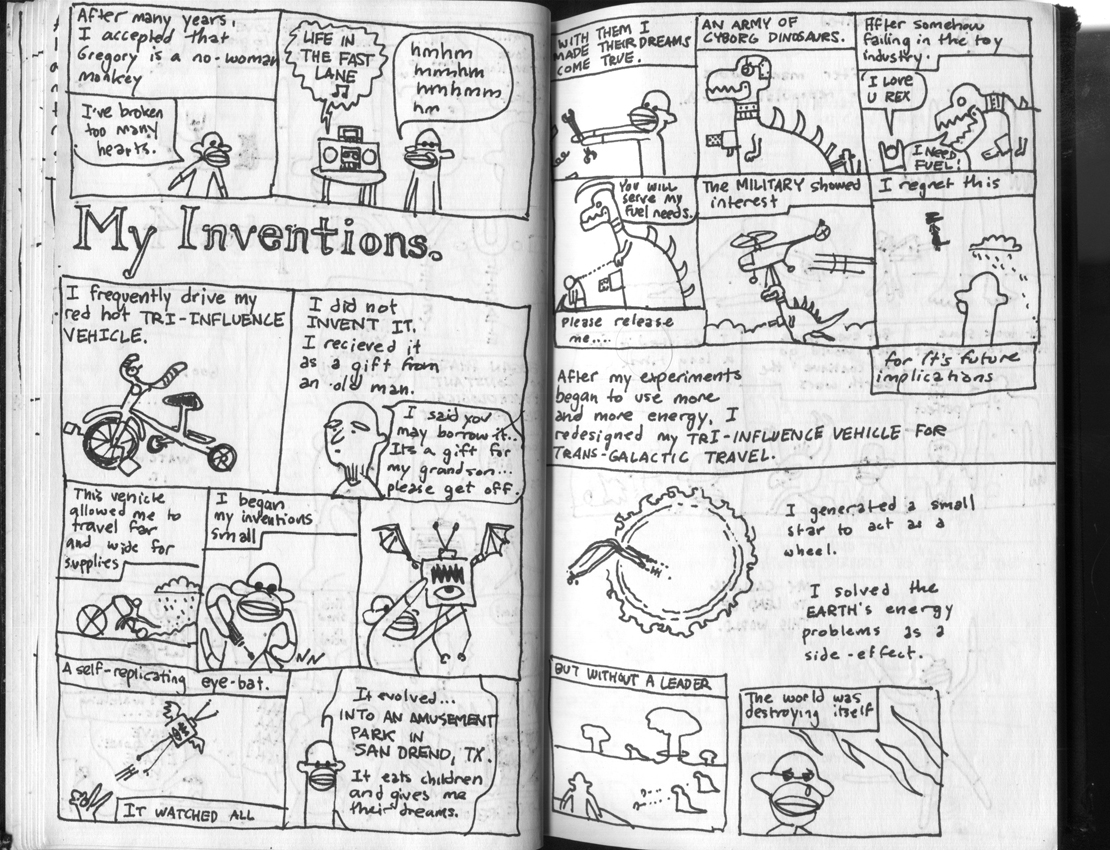 After many years,
I accepted that
Gregory is a no-woman
monkey
I've broken
too many
hearts.
LIFE IN
THE FAST
LANE
hmhm
mmmhm
hmhmmm
hm
My Inventions.
I frequently drive my
red hot TRI-INFLUENCE
VEHICLE.
I did not
INVENT IT.
I recieved it
as a gift from
an old man.
I said you
may borrow it..
Its a gift for
my grandson...
please get off.
This vehicle
allowed me to
travel far
and wide for
supplies
I began
my inventions
small
A self-replicating eye-bat.
IT WATCHED ALL
It evolved...
INTO AN AMUSEMENT
PARK IN
SAN DREND, TX.
It eats children
and gives me
their dreams.
WITH THEM I
MADE THEIR DREAMS
COME TRUE.
AN ARMY OF
CYBORG DINOSAURS.
After somehow
failing in the toy
industry.
I LOVE
U REX
I NEED
FUEL!
YOU WILL
serve my
fuel needs.
please release
me....
The MILITARY showed
interest
I regret this
for it's future
implications
After my experiments
began to use more
and more energy, I
redesigned my TRI-INFLUENCE VEHICLE FOR
TRANS-GALACTIC TRAVEL.
I generated a small
star to act as a
wheel.
I solved the
EARTH's energy
problems as a
side-effect.
BUT WITHOUT A LEADER
The world was
destroying itself